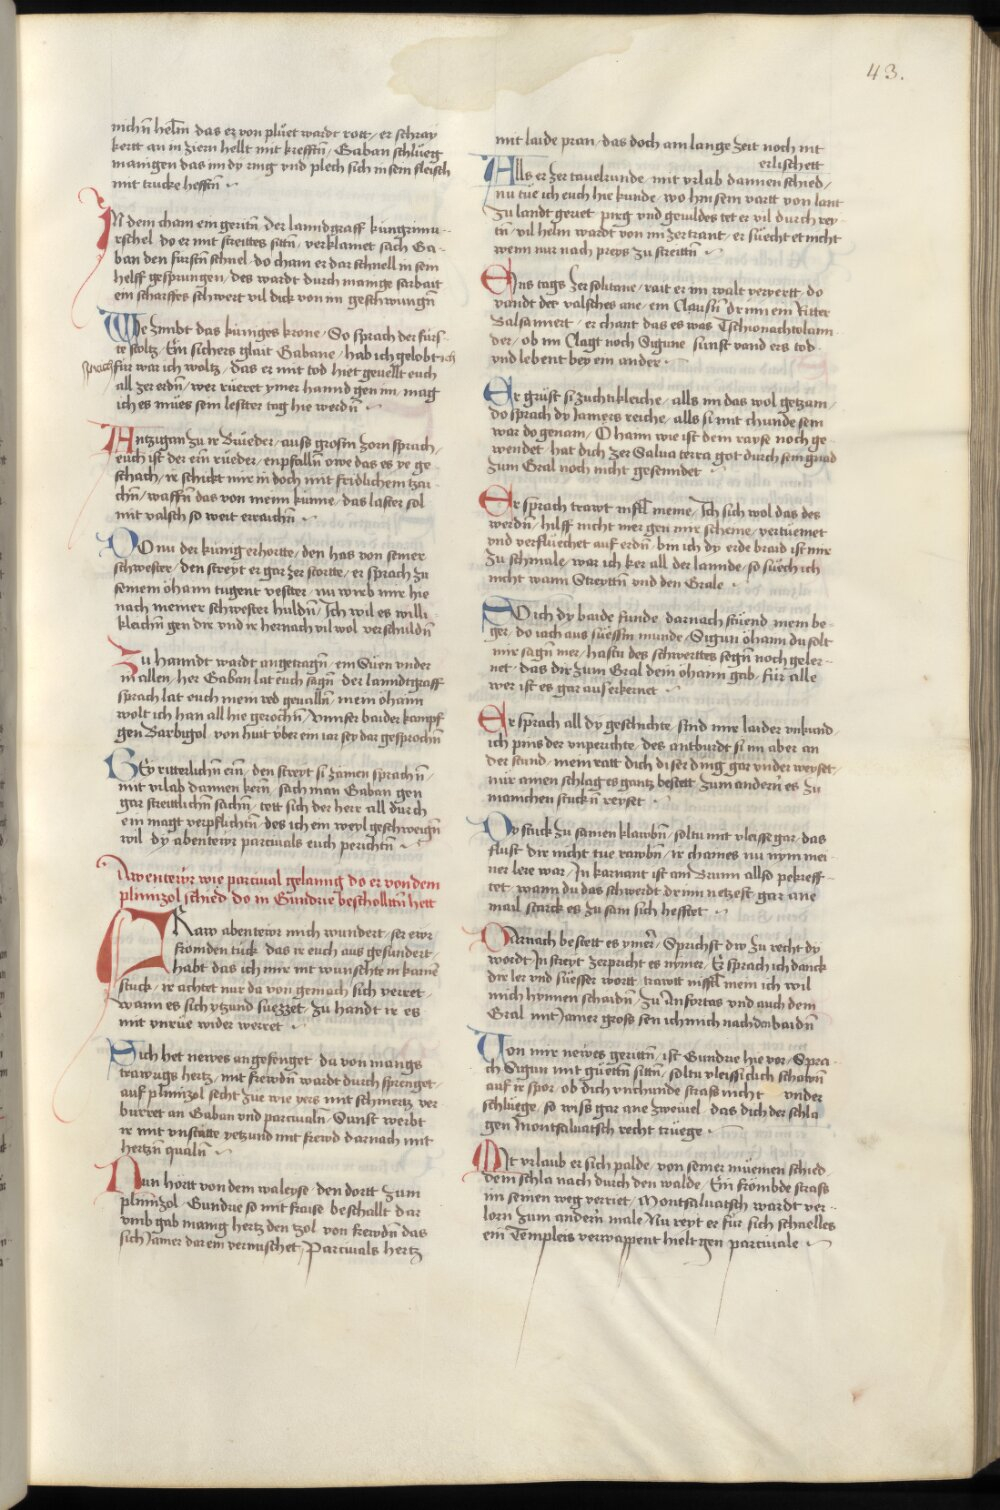 43.
nichñ helm das er von pluet wardt rott / er schray
kertt an in ziern hellt mit krefftñ / Gaban schlueg
manigen das im dy ring vnd plech sich in sein fleisch
mit trucke hefftñ
IN dem cham ein geritñ / der lanndgraff kungrimu-
rschel / do er mit streittes sittñ / verklamet sach Ga-
ban den furstñ schnel / do cham er dar schnell in sein
helff gesprungen / des wardt durch manige sarbait
ein scharffes schwert vil dick von im geschwungñ
We zimbt das kuniges krone / So sprach der furs-
te stoltz / Ein sichers glait Gabane / hab ich gelobt ich
sprach fur war ich woltz / das er mit tod hiet geuellt euch
all zer erdñ / wer rueret ymer hannd gen im / mag
ich es mues sein lestter tag hie werdñ
Antzigan zu ir Brueder / auss grosm zorn sprach /
euch ist der ern rueder / enpfallñ owe das es ye ge-
schach / ir schickt mir in doch mit fridlichem tzai-
chñ / waffñ das von meim kunne / das laster sol
mit valsch so weit erraichñ
DO nu der kunig erhortte / den has von seiner
schwester / den streyt er gar zer stortte / er sprach zu
seinem ohaim tugent vestter / nu wirb mir hie
nach meiner schwester huldñ / Ich wil es willi-
kleichñ gen dir vnd ir hernach vil wol verschuldñ
Zu hanndt wardt angetragñ / ein Suen vnder
in allen / her Gaban lat euch sagñ der lanndtgraff
sprach lat euch mein red geuallñ / mein ohaim
wolt ich han all hie gerochñ / Vnnser baider kampf
gen Barbigol von huit vber ein iar sey dar gesprochñ
BEy ritterlichñ ern / den streyt si zamen sprachñ /
mit vrlab dannen kern / sach man Gaban gen
gar streittlichñ sachñ / tett sich der herr all durch
ein magt verpflichtñ / des ich ein weyl geschweigñ
wil dy abentewr parciuals euch perichtñ
Awentewr wie parciual gelanng do er von dem
plimizol schied do in Gundrie bescholltñ hett
FRaw abentewr mich wundert / ser ewr
fromden tuck / das ir euch aus gesundert /
habt das ich mir nit wunschte in kaine
stuck / ir achtet nur da von gemach sich verret
wann es sich ytzund suezzet / zu handt ir es
mit vnrue wider werret
Sich het newes angefenget da von manigs
trawrigs hertz / mit frewdñ wardt durch sprenget /
auf plimizol secht zue wie yers mit schmertz ver
burret an Gaban vnd parciualñ / Sunst weibt
ir mit vnstatte yetzund mit frewd darnach mit
hertzñ qualñ
Nun hortt von dem waleyse / den dortt zum
plimizol / Gundrie so mit fraise beschallt dar
vmb gab manig hertz den zol von frewdñ das
sich Jamer dar ein vermischet / Parciuals hertz
mit laide pran / das doch am lange zeit noch nit
erlischett
Alls er zer tauelrunde / mit vrlab dannen schied /
nu tue ich euch hie kunde / wo hin sein vartt von lant
zu landt geriet purg vnd geuildes tet er vil durch rey-
tñ / vil helm wardt von im zertrant / er suecht et nicht
wenn nur nach preys zu streittñ
Eins tags zer soltane / rait er im walt verpertt / do
vandt der valsches ane / ein Clausñ dr inn ein Ritter
Balsamiert / er chant das es was Tschionachtolann-
der / ob im Clagt noch Sigune sunst vand ers tod
vnd lebent bey ein ander
Er grust si zuchtikleiche / alls im das wol getzam /
do sprach dy Jamers reiche / alls si mit chunde sein
war do genam / O haim wie ist dein rayse noch ge-
wendet / hat dich zer Salua terra got durch sein gnad
zum Gral noch nicht gesenndet
Er sprach trawt nifft̄l meine / Ich sich wol das des
werdñ / hilff nicht mer gen mir scheine / vertuemet
vnd verfluechet auf erdñ / bin ich dy erde braid ist mir
zu schmale / war ich ker all der lannde / so suech ich
nicht wann Streyttñ vnd den Grale
DO ich dy baide funde / darnach stuend mein be-
ger / do iach aus suessm munde / Sigun ohaim du solt
mir sagñ mer / hastu des schwerttes segñ noch geler-
net / das dir zum Gral dein ohaim gab / fur alle
wer ist es gar auserkernet
Er sprach all dy geschichte / sind mir laider vnkund /
ich pins der vnperichte / des anttburdt si im aber an
der stund / mein ratt dich diser ding gar vnder weyset /
nur ainen schlag es gantz bestett zum andern es zu
mainchen stuckñ reyset
Dy stuck zu samen klawbñ / soltu mit vleiss gar / das
flust dir nicht tue rawbñ / ir chaines nu nym mei-
ner lere war / In karnant ist am Brunn allso pekreff-
tet / wann du das schwerdt dr inn netzest gar ane
mail starck es zu sam sich hefftet
Darnach bestett es ymer / Sprichst dw zu recht dy
wordt / In streyt zerpricht es nymer / Er sprach ich danck
dir ler vnd suesser wortt / trawtt nifft̄l mein ich wil
mich hynnen schaidñ / zu Anfortas vnd auch dem
Gral mit Jamer gross sen ich mich nach den baidñ
Von mir newes gerittñ / ist Gundrie hie vor / Spra-
ch Sigun mit guettñ sittñ / soltu vleissiclich schawñ
auf ir spor / ob dich vnchunde strass nicht vnder
schluege / so wiss gar ane zweiuel das dich der schla
gen Montsaluatsch recht truege
Mit vrlaub er sich palde / von seiner muemen schied
dem schla nach durch den walde / Ein frombde strass
im seinen weg verriet / Montsaluatsch wardt ver-
lorn zum andern male / Nu reyt er fur sich schnelles
ein Templeis verwappent hielt gen parciuale